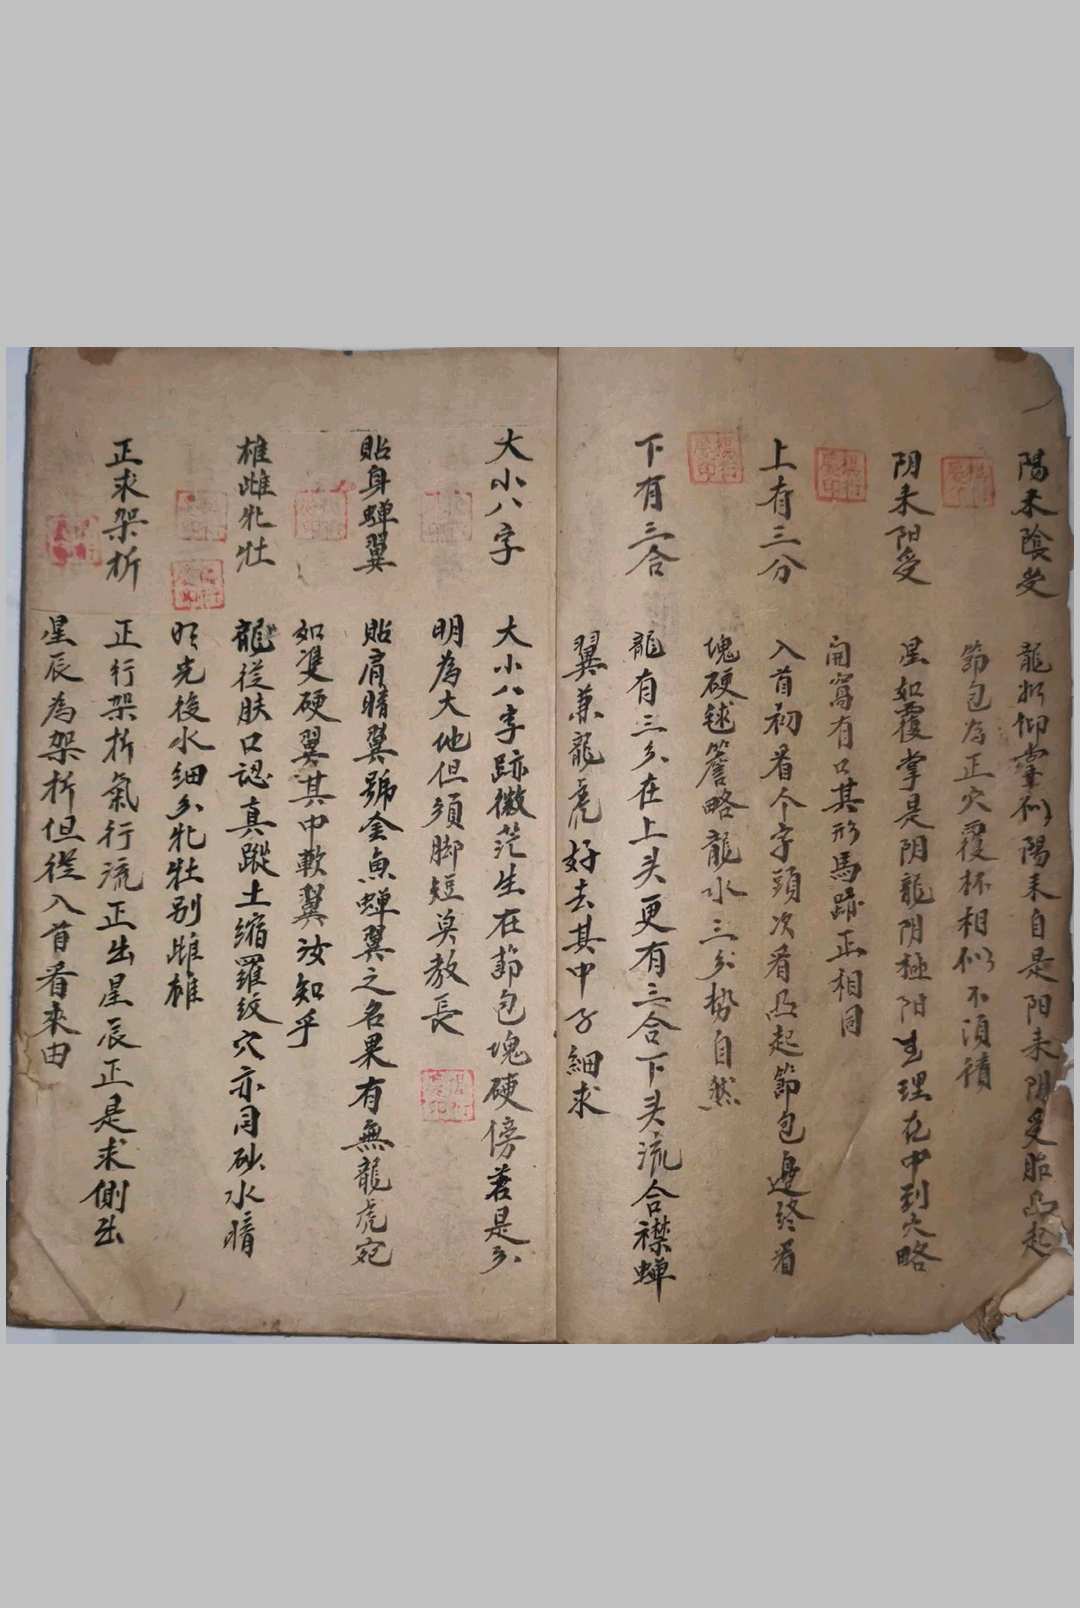 陽来陰受 龍如仰掌似陽来自是阳来阴受胎凸起
節包为正穴覆杯相似不須積
阴来阳受 星如覆掌是阴龍阴極阳生理在中到穴略
開窩有口其形馬跡正相同
上有三分 入首初看个字頭次看凸起節包邊終看
塊硬毬簷略龍水三分势自然
下有三合 龍有三分在上头更有三合下头流合襟蝉
翼兼龍虎好去其中子細求
大小八字 大小八字跡微茫生在節包塊硬傍若是分
明為大地但須脚短莫教長
貼身蝉翼 貼肩暗翼號金魚蝉翼之名果有無龍虎宛
如双硬翼其中軟翼汝知乎
雄雌牝牡 龍従肤口認真蹤土縮羅紋穴亦同砂水暗
明先後水細分牝牡别雌雄
正求架折 正行架折氣行流正出星辰正是求側出
星辰為架折但従入首看来由